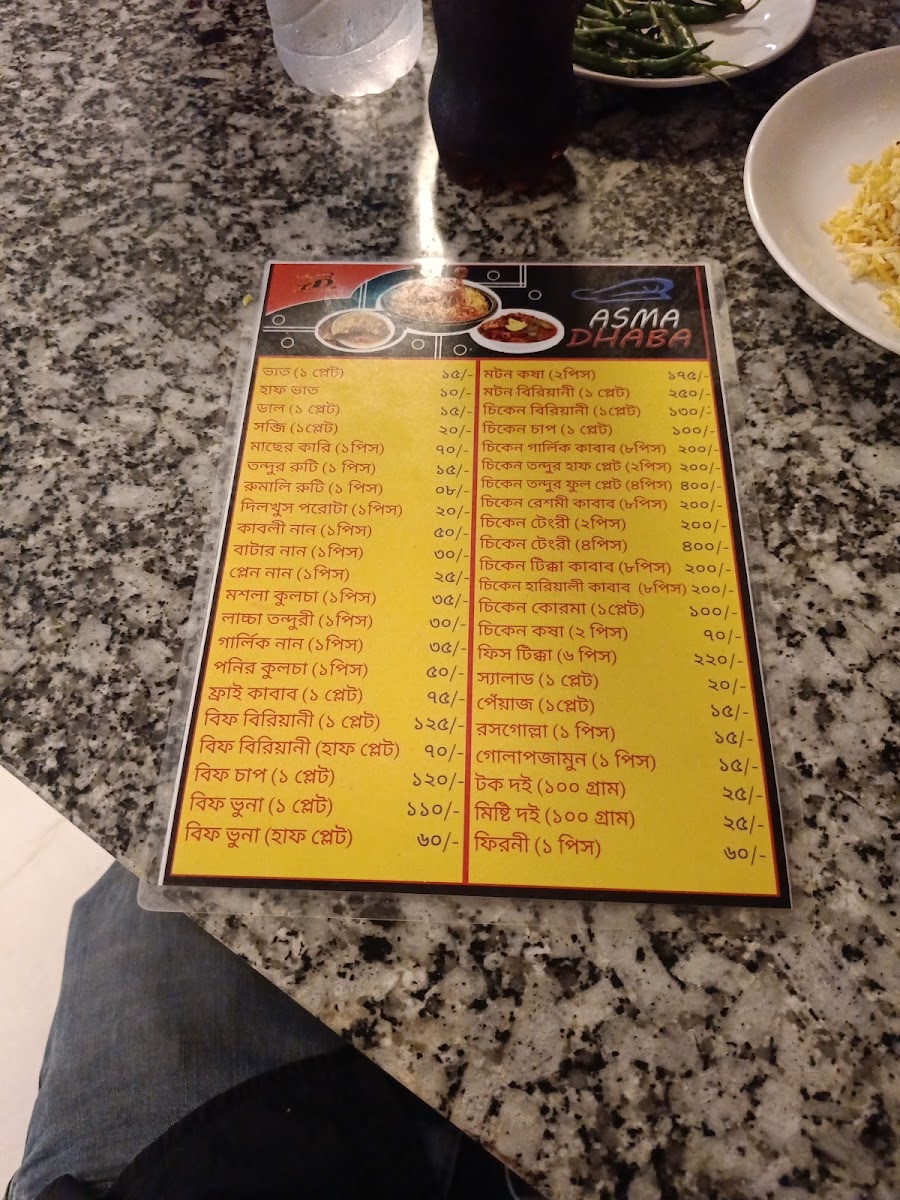 ASMA
DHABA
ভাত (১ প্লেট) ১৫/-
হাফ ভাত ১০/-
ডাল (১ প্লেট) ১৫/-
সব্জি (১প্লেট) ২০/-
মাছের কারি (১পিস) ৭০/-
তন্দুর রুটি (১ পিস) ১৫/-
রুমালি রুটি (১ পিস) ০৮/-
দিলখুস পরোটা (১পিস) ২০/-
কাবলী নান (১পিস) ৫০/-
বাটার নান (১পিস) ৩০/-
প্লেন নান (১পিস) ২৫/-
মশলা কুলচা (১পিস) ৩৫/-
লাচ্চা তন্দুরী (১পিস) ৩০/-
গার্লিক নান (১পিস) ৩৫/-
পনির কুলচা (১পিস) ৫০/-
ফ্রাই কাবাব (১ প্লেট) ৭৫/-
বিফ বিরিয়ানী (১ প্লেট) ১২৫/-
বিফ বিরিয়ানী (হাফ প্লেট) ৭০/-
বিফ চাপ (১ প্লেট) ১২০/-
বিফ ভুনা (১ প্লেট) ১১০/-
বিফ ভুনা (হাফ প্লেট) ৬০/-
মটন কষা (২পিস) ১৭৫/-
মটন বিরিয়ানী (১ প্লেট) ২৫০/-
চিকেন বিরিয়ানী (১প্লেট) ১৩০/-
চিকেন চাপ (১ প্লেট) ১০০/-
চিকেন গার্লিক কাবাব (৮পিস) ২০০/-
চিকেন তন্দুর হাফ প্লেট (২পিস) ২০০/-
চিকেন তন্দুর ফুল প্লেট (৪পিস) ৪০০/-
চিকেন রেশমী কাবাব (৮পিস) ২০০/-
চিকেন টেংরী (২পিস) ২০০/-
চিকেন টেংরী (৪পিস) ৪০০/-
চিকেন টিক্কা কাবাব (৮পিস) ২০০/-
চিকেন হারিয়ালী কাবাব (৮পিস) ২০০/-
চিকেন কোরমা (১প্লেট) ১০০/-
চিকেন কষা (২ পিস) ৭০/-
ফিস টিক্কা (৬ পিস) ২২০/-
স্যালাড (১ প্লেট) ২০/-
পেঁয়াজ (১প্লেট) ১৫/-
রসগোল্লা (১ পিস) ১৫/-
গোলাপজামুন (১ পিস) ১৫/-
টক দই (১০০ গ্রাম) ২৫/-
মিষ্টি দই (১০০ গ্রাম) ২৫/-
ফিরনী (১ পিস) ৬০/-